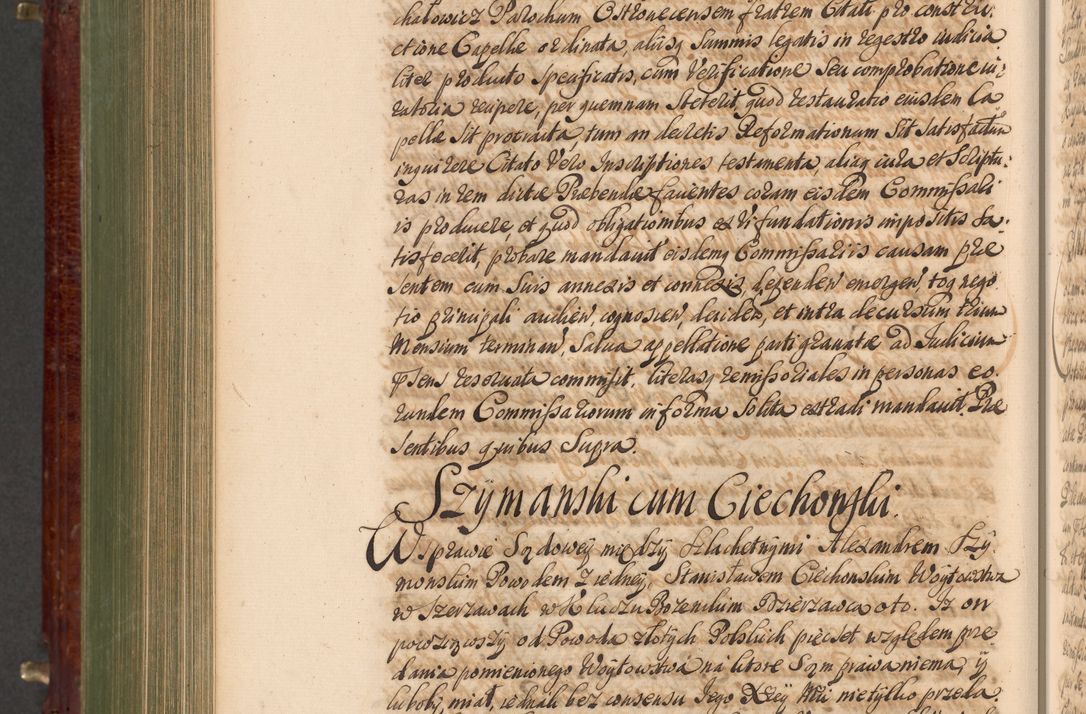 chałowicz Parochum Ostronecensem fratrem Citati pro constru-
ctione Capellæ ordinata, aliisq sammis legatis in regestro iudicia
liter producto specificatis, cum Verificatione seu comprobatione iu-
ratoria recipere, per quemnam steterit, quod restauratio eiusdem Ca
pellæ sit protracta, tum an decretis Reformationum sit satisfactum
inquirere Citato Vero Inscriptiones testamenta, aliaq iura et Scriptu-
ras in rem dictæ Præbendæ favientes coram eisdem Commissari
is producere et quod obligationibus ex vi fundationis impositis sa-
tisfecerit, probare mandavit eisdemq Commissariis causam præ
sentem cum suis annexis et connexis, dependen, emergen, totoq nego
tio principali audien, cognoscen, deciden, et intra decursum trium
Mensium terminan, Salva appellatione parti gravatæ ad Iudicium
præsens reservata commisit, literasq remissoriales in personas eo-
rundem Commissariorum in forma solita extradi mandavit, Præ
sentibus quibus Supra.
Szÿmanski cum Ciechonski.
W sprawie Sądoweÿ międzÿ Szlachetnÿmi Alexandrem Szÿ
monskim Powodem z iedneÿ, Stanisławem Ciechonskim Woÿtowstwa
w Szerzawach w Kluczu Bozenckim Dzierzawcą oto. Iz on
powziąwszÿ od Powoda złotÿch Polskich pięcset względem prze
dania pomienionego Woÿtowstwa na ktore Sąm prawa niema, ÿ
lubobÿ, miał, iednak bez consensu Jego Xzeÿ Mci nietÿlko przeda